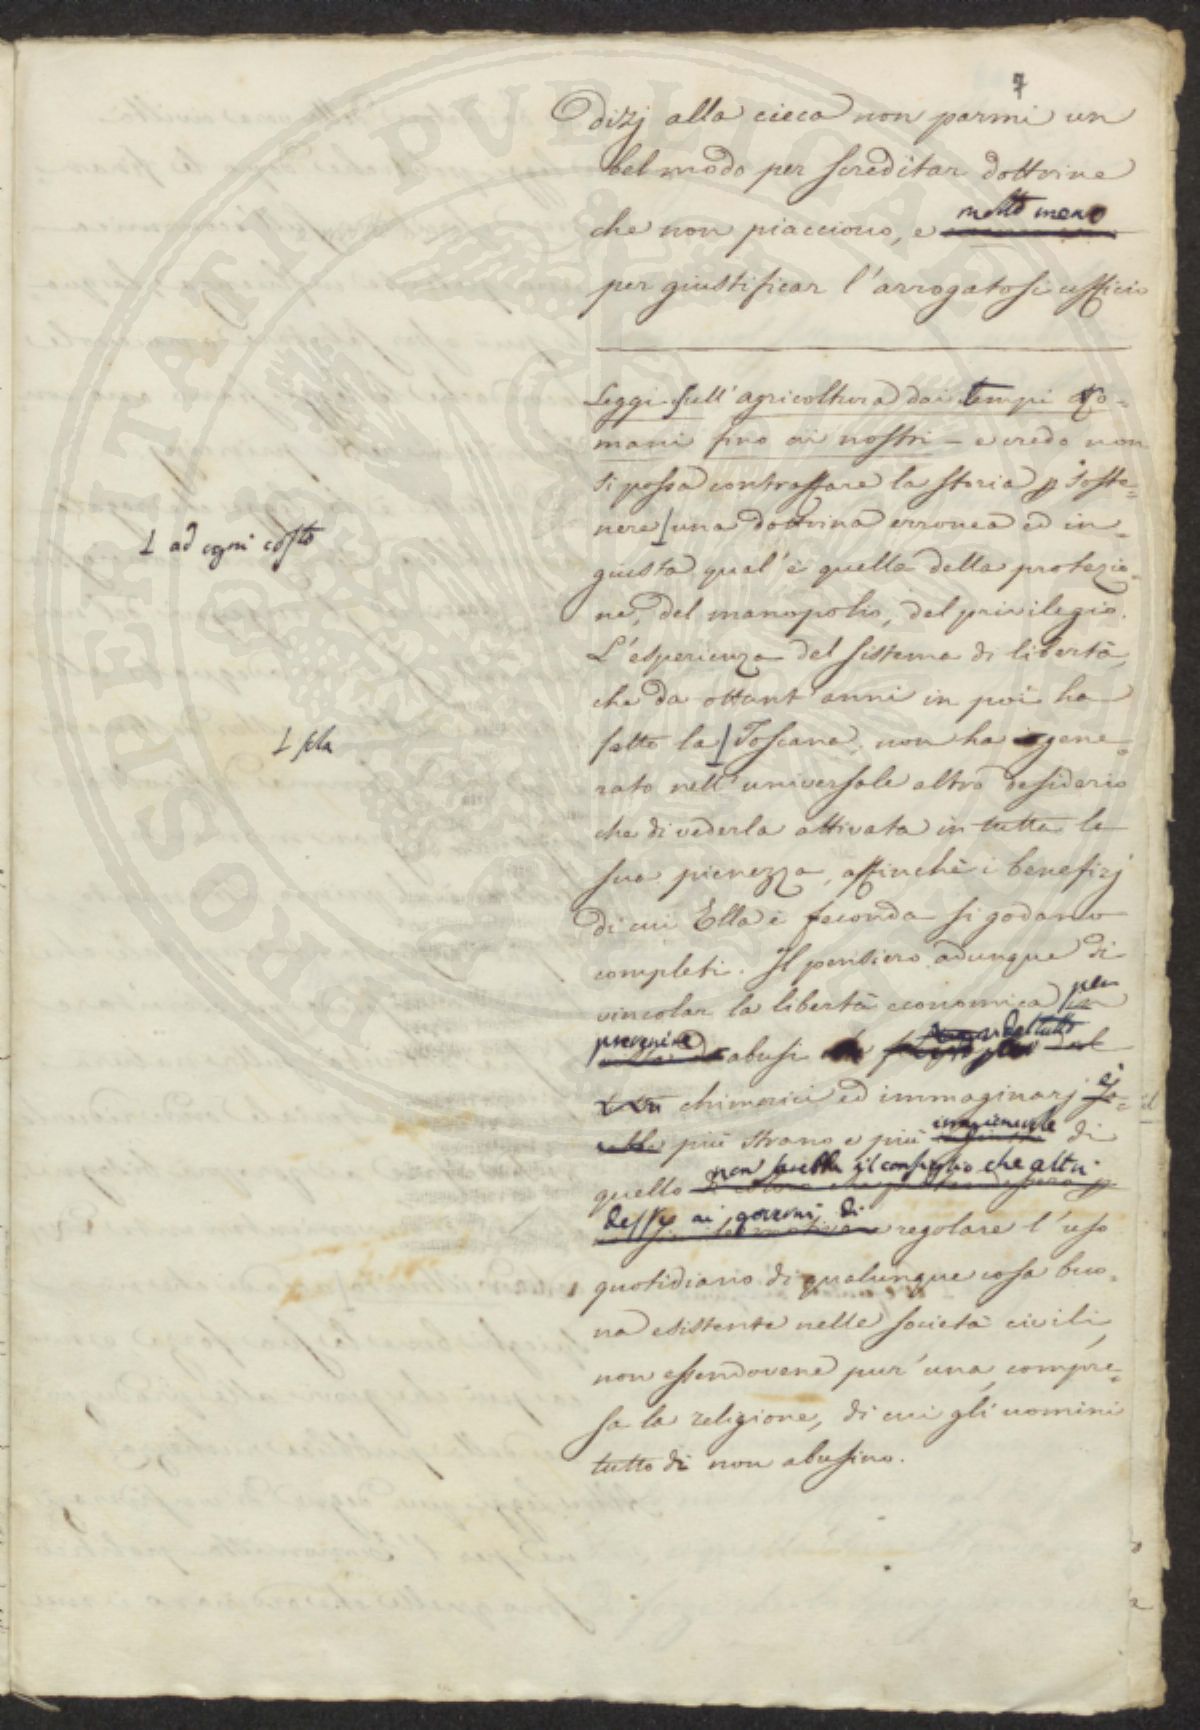 7
dizj alla cieca non parmi un
bel modo per screditar dottrine
che non piacciono, e molto meno
per giustificar l'arrogatosi ufficio
Leggi sull'agricoltura dai tempi Ro=
mani fino ai nostri - e credo non
si possa contraffare la storia p soste=
nere una dottrina erronea ed in=
⊥ ad ogni costo
giusta qual'è quella della protezio=
ne, del monopolio, del privilegio.
L'esperienza del sistema di libertà,
che da ottant'anni in poi ha
fatto la Toscana, non ha gene=
⊥ sola
rato nell'universale altro desiderio
che di vederla attivata in tutta la
sua pienezza, affinchè i benefizj
di cui Ella è feconda si godano
completi. Il pensiero adunque di
vincolar la libertà economica per
prevenire abusi del tutto
chimerici ed immaginarj è
più strano e più sconveniente di
quello non sarebbe il consiglio che altri
desse ai governi di regolare l'uso
quotidiano di qualunque cosa buo=
na esistente nelle società civili,
non essendovene pur'una, compre=
sa la religione, di cui gli uomini
tutto dì non abusino.
PROSPERITATI PVBLICAE